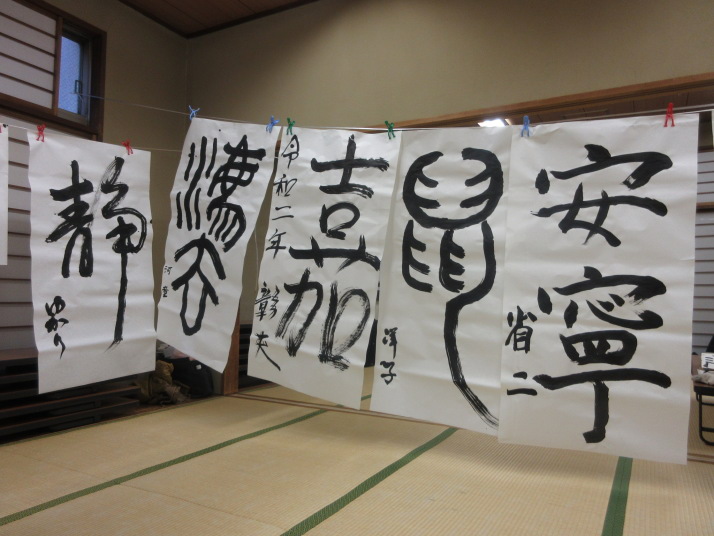 安寧
省二
鼠
洋子
嘉
令和二年
彰夫
静
ゆかり